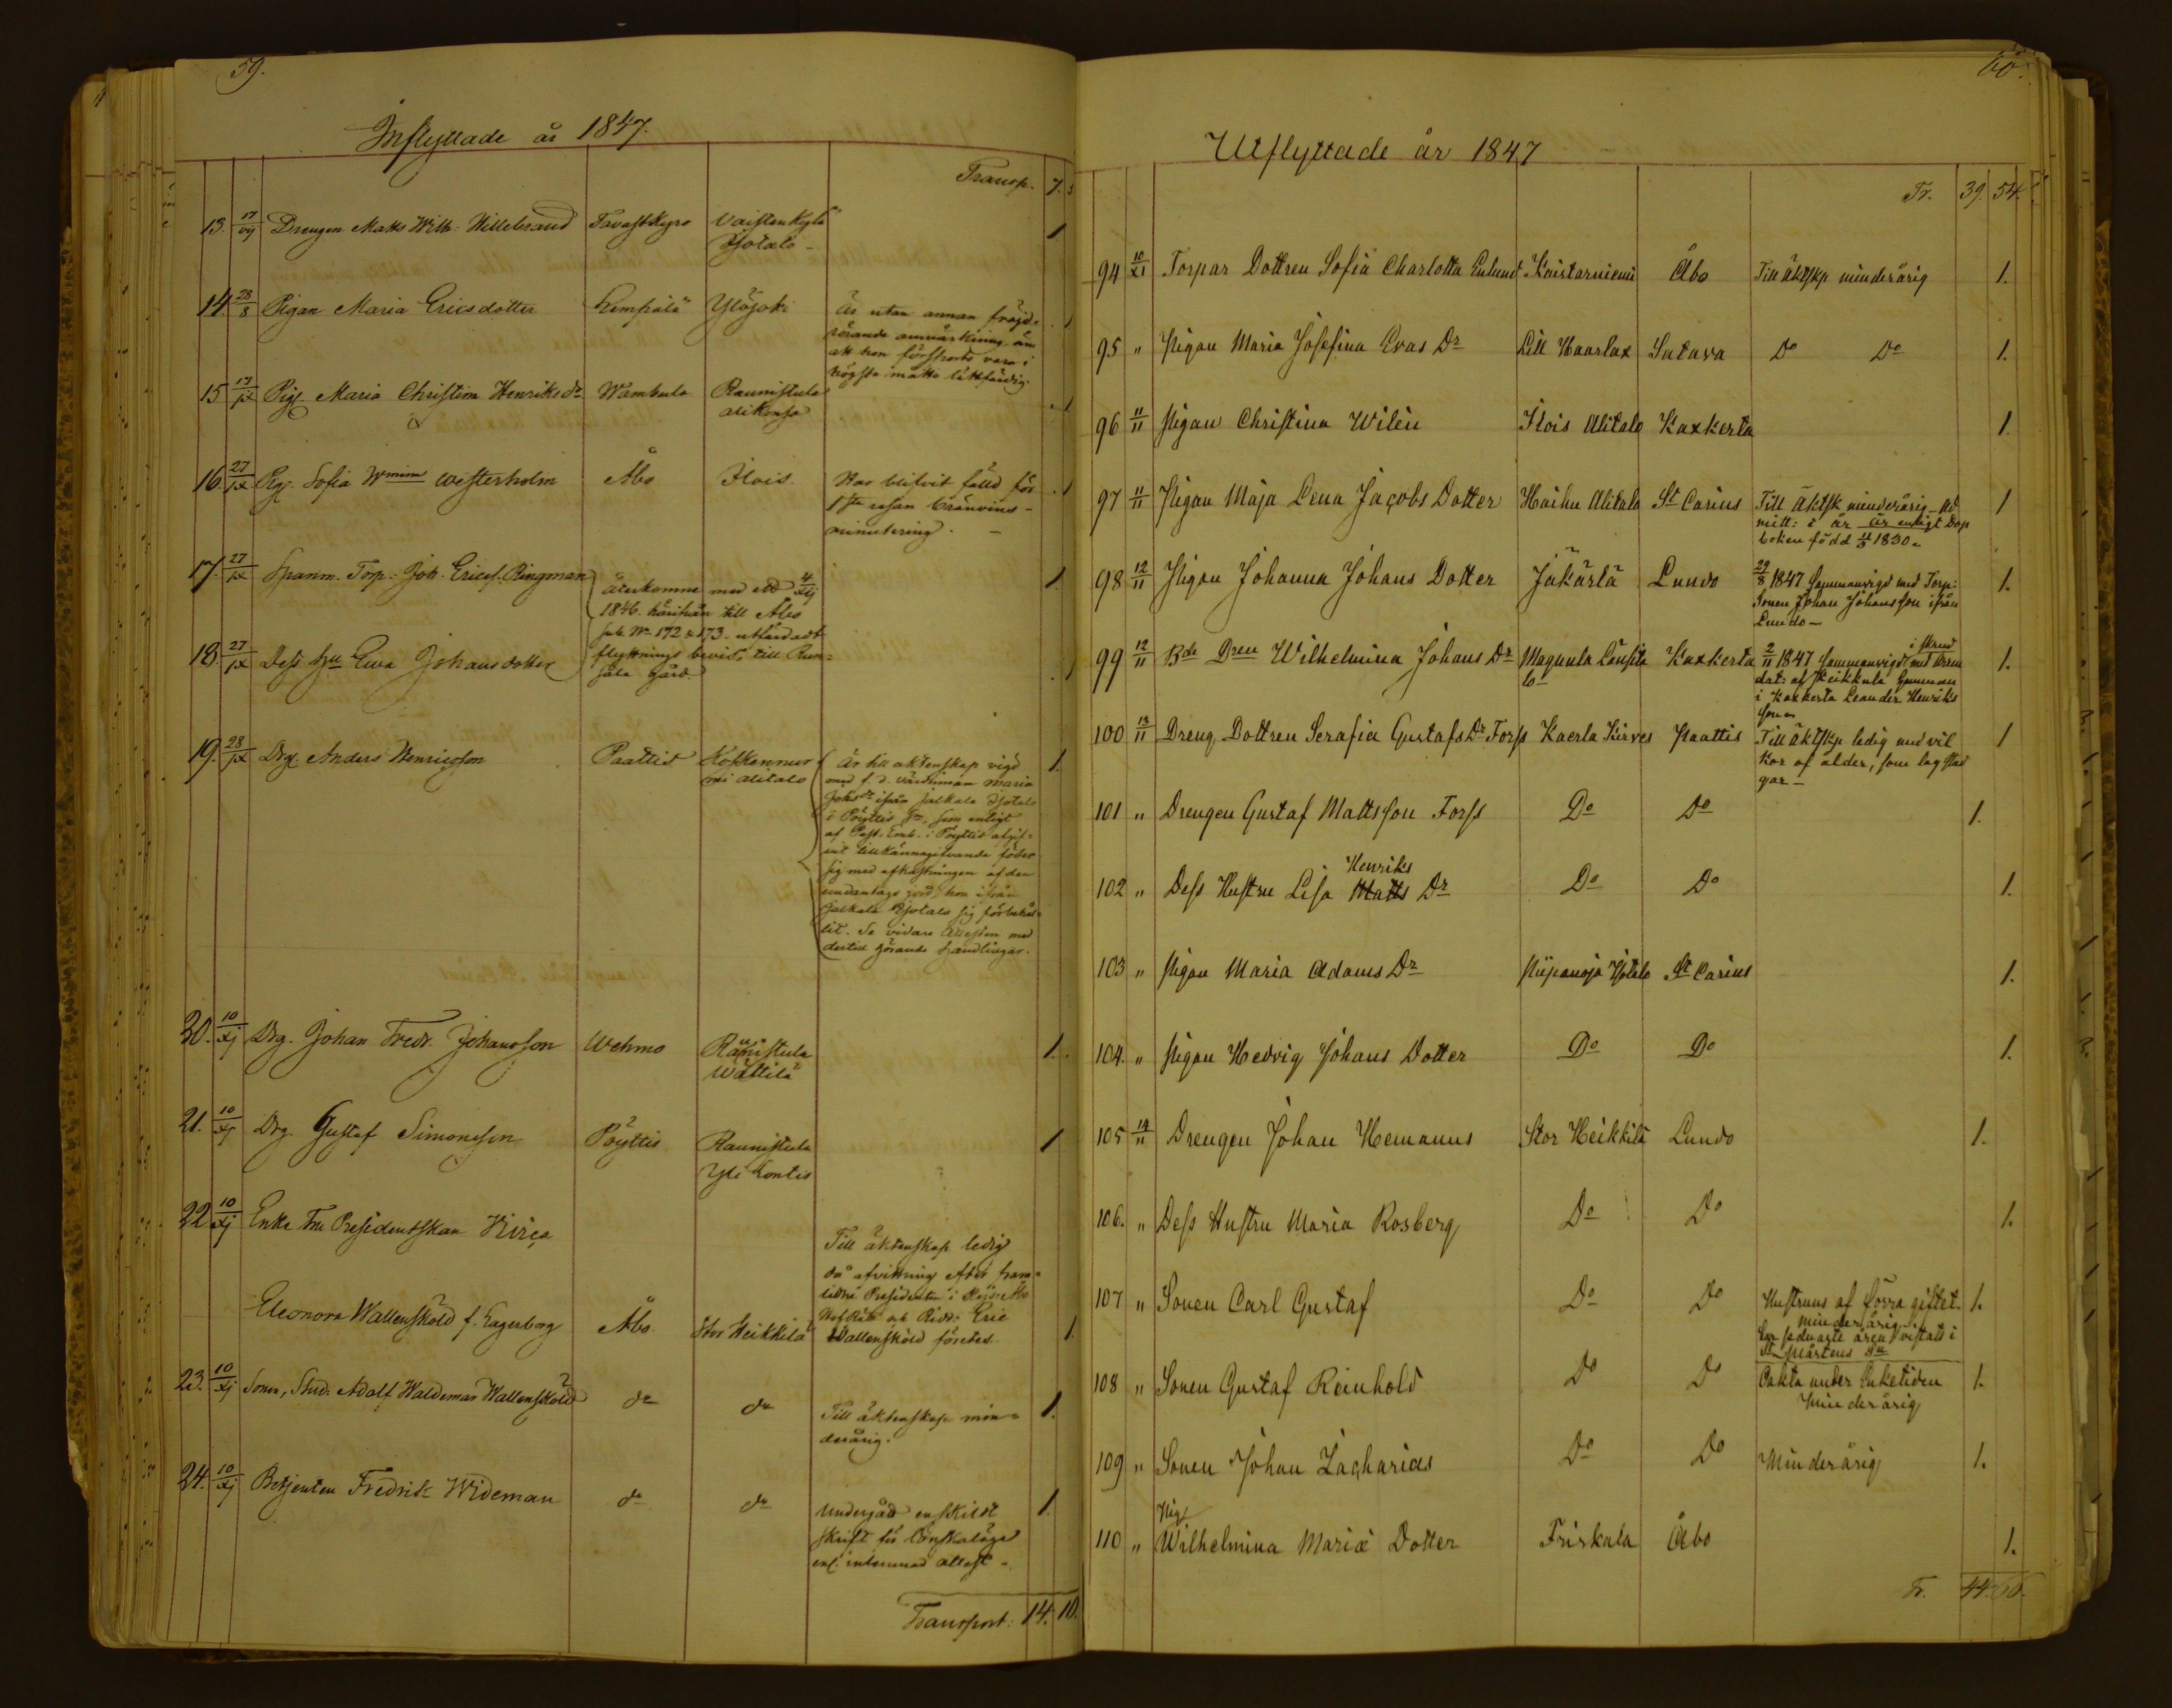 59.
Inflyttade år 1847.
Transp. 7. 3
13. 17/vij Drengen Matts Wilh: Hillebrand Tavastkyro Vaistenkylä 1
Ysotalo -
14 28/8 Pigan Maria Ericsdotter Lempälä Ylöjoki Är utan annan fräjd- 1
rörande anmärkning än
att hon försports vara i
högsta måtto lättfärdig.
15 17/ix Pig. Maria Christina Henriksdr Wambula Raunistula 1
Alikonsa
16. 27/ix Pig. Sofia Wmina Westerholm Åbo Ilois. Har blifvit fälld för 1
1sta resan bränvins-
minutering. -
17. 27/ix Spanm. Torp. Joh. Ericss. Ringman Återkomne med ett 4/xij 1.
1846. härifrån till Åbo
sub No 172 & 173. utfärdadt
18. 27/ix Dess Hu Ewa Johansdotter flyttnings bevis, till Run- 1
sala gård.
19. 28/ix Drg. Anders Henricsson Paattis Koskennur Är till äktenskap vigd 1.
mi alitalo med f. d. värdinnan Maria
Johsdr ifrån Jalkala Ysotalo
i Pöyttis Sn, som enligt
af Past. Emb. i Pöyttis afgif-
vit tillkännagifvande föder
sig med afkastningen af den
undantags jord, hon ifrån
Jalkala Ysotalo sig förbehål-
lit. Se vidare Attesten med
dertill hörande handlingar.
20. 10/xj Drg. Johan Fredr. Johansson Wehmo Raunistula 1.
Wättilä
21. 10/xj Drg. Gustaf Simonsson Pöyttis Raunistula 1
Yli Kontis
22 10/xj Enke Fru Presidentskan Till äktenskap ledig
då afvittring efter fram-
lidne Presidenten i Kejs: Åbo
Eleonora Wallensköld f. Lagerborg Åbo Stor Heikkilä Hof Rätt och Ridd: Eric
Wallensköld företes. 1.
23. 10/xj Sonen, Stud. Adolf Waldemar Wallensköld do do Till äktenskap min- 1.
derårig.
24. 10/xj Betjenten Fredrik Wideman do do Undergåd enskildt 1.
skrift för lönskaläge
enl. inlemnad attest -
Transport: 14. 10.
60.
Utflyttade år 1847
Tr. 39. 54.
94 10/xi Torpar Dottren Sofia Charlotta Enlund Kaistarniemi Åbo Till äktskp minderårig 1.
95 " Pigan Maria Josefina Evas Dr Lill Haarlax Satava Do Do 1.
96 11/11 Pigan Christina Wilén Ilois Alitalo Kaxkerta 1.
97 11/11 Pigan Maja Lena Jacobs Dotter Haihu Alitalo St Carins Till äktsk minderårig - Ad 1
mitt: i år är enligt Dop
boken född 11/3 1830.
98 12/11 Pigan Johanna Johans Dotter Jäkärlä Lundo 29/8 1847 sammanvigd med Torp: 1.
Sonen Johan Johansson ifrån
Lundo -
99 12/11 Bde Dren Wilhelmina Johans Dr Magnula Länsita Kaxkerta 2/11 1847 sammanvigd med Arren 1.
lo dat: af Heikkula hemman
i Kaxkerta Leander Henriks
son
100 13/11 Dreng Dottren Serafia Gustafs Dr Forss Kaerla Kirves Paattis Till äktskp ledig med vil 1
kor af ålder, som lag stad
gar -
101 " Drengen Gustaf Mattsson Forss Do Do 1.
Henriks
102 " Dess Hustru Lisa Matts Dr Do Do 1.
103 " Pigan Maria Adams Dr Piipanoja Ylitalo St Carins 1.
104. " Pigan Hedvig Johans Dotter Do Do 1.
105 14/11 Drengen Johan Hemanus Stor Heikkilä Lundo 1.
106. " Dess Hustru Maria Rosberg Do Do 1.
107 " Sonen Carl Gustaf Do Do Hustruns af förra giftet. 1.
minderårig.
har sednaste åren vistats i
St Mårtens Sn
108 " Sonen Gustaf Reinhold Do Do Oäkta under Enketiden 1.
Minderårig
109 " Sonen Johan Zacharias Do Do Minderårig 1.
Pig.
110 " Wilhelmina Mariæ Dotter Friskala Åbo 1.
Tr. 44. 66.